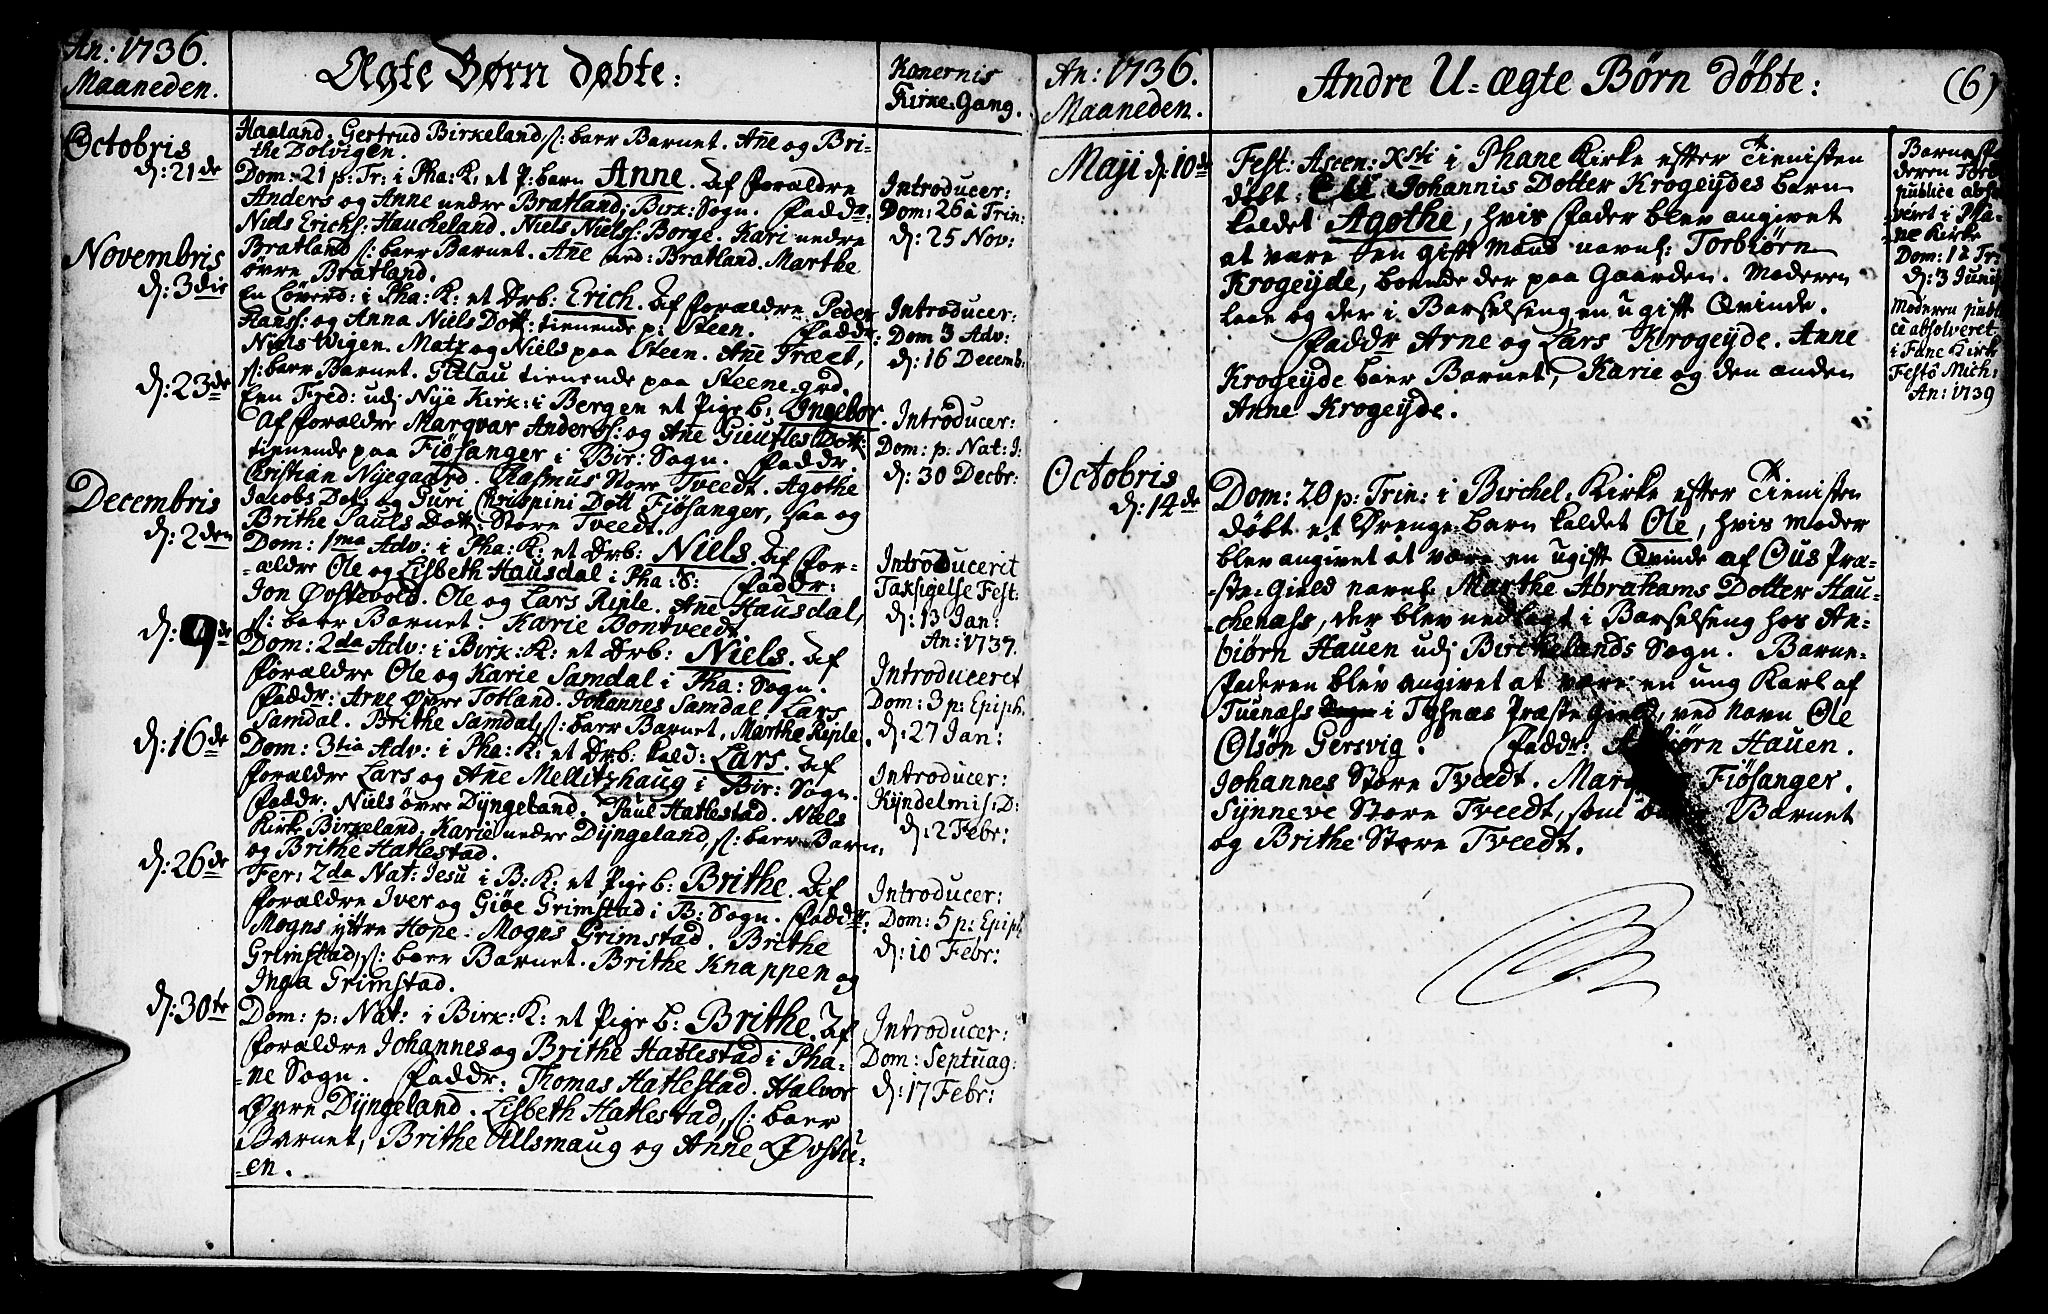 An: 1736.
Maaneden.
Ægte Børn døbte:
Konernis
Kirke-Gang.
Octobris
Haaland. Gertrud Birkeland, s: baer Barnet. Añe og Bri-
the Dolvigen.
d: 21de
Dom: 21 p: Tr: i Pha: K: et P: barn Anne. Af Foraldre
Anders og Anne nedre Bratland, Birk: Sogn. Faddr:
Niels Erichs: Haucheland. Niels Niels: Borge. Kari nedre
Bratland s: baer Barnet. Añe ned: Bratland. Marthe
øvre Bratland.
Introducer:
Dom: 26 à Trin:
d: 25 Nov:
Novembris
d: 3die
En Løverd: i Pha: K: et Drb: Erich. Af Foraldre Peder
Hanss: og Anna Niels Dott: tienende p: Steen. Faddr:
Niels Wigen. Matz og Niels paa Steen. Añe Træet,
s: baer Barnet. tienende paa Steene-grd.
Introducer:
Dom 3 Adv:
d: 16 Decemb:
d: 23de
Een Fred: udj Nye Kirk: i Bergen et Pige b: Ingebor
Af Foraldre Marqvar Anders: og Añe Dott:
tienende paa Fiøsanger i Bir: Sogn. Faddr.
Christian Nijegaard. Rasmus Store Tveedt. Agothe
Jacobs Dot, og Giuri Chrispini Dott Fiøsanger, saa og
Brithe Pauls Dott: Store Tveedt.
Introducer:
Dom: p: Nat: J:
d: 30 Decbr:
Decembris
d: 2den
Dom: 1ma Adv: i Pha: K: et Drb: Niels. Af For-
-aldre Ole og Lisbeth Hausdal i Pha: S: Faddr:
Jon Øvstevold. Ole og Lars Riple. Añe Hausdal,
s: baer Barnet. Karie Bontveedt
Introducerit
Taksigelse Fest.
d: 13 Jan:
An: 1737.
d: 9de
Dom: 2da Adv: i Birk: K: et Drb: Niels. Af
Foraldre Ole og Karie Samdal i Pha: Sogn.
Faddr: Arne Øvre Totland. Johannes Samdal. Lars
Samdal. Brithe Samdal, s: baer Barnet, Marthe Riple.
Introduceret
Dom: 3 p: Epiph.
d: 27 Jan:
d: 16de
Dom: 3tia Adv: i Pha: K: et Drb: kald: Lars. Af
Foraldre Lars og Añe Mellitzhaug i Bir: Sogn.
Faddr: Niels øvre Dyngeland. Paul Hatlestad. Niels
Kirke Birkeland, Karie nedre Dyngeland, s: baer Barn:
og Brithe Hatlestad.
Introducer:
Kyndelmis: D:
d: 2 Febr:
d: 26de
Fer: 2da Nat: Jesu i B: K: et Pige b: Brithe. Af
Foraldre Iver og Giøe Grimstad i B: Sogn. Faddr:
Mogns yttre Hope. Mogns Grimstad. Brithe
Grimstad, s: baer Barnet. Brithe Knappen og
Inga Grimstad.
Introducer:
Dom: 5 p: Epiph
d: 10 Febr:
d: 30te
Dom: p: Nat: i Birk: K: et Pige b: Brithe. Af
Foraldre Johannes og Brithe Hatlestad i Pha-
-ne Sogn. Faddr: Thomas Hatlestad. Halvor
Øvre Dyngeland. Lisbeth Hatlestad, s: baer
Barnet, Brithe Ulsmaug og Anne Øvstu-
-en.
Introducer:
Dom: Septuag:
d: 17 Febr:
An: 1736.
Maaneden.
Andre U-ægte Børn døbte:
(6)
Maji d: 10de
Fest: Ascen: Xsti i Phane Kirke efter Tienisten
døbt: Johannis Dotter Krogeydes barn
kaldet Agothe, hvis Fader blev angivet
at være den gift Mand navnl: Torbiørn
Krogeyde, boende der paa Gaarden. Moderen
laae og der i Barselsengen ugift Qvinde.
Faddr Arne og Lars Krogeyde. Anne
Krogeyde baer Barnet, Karie og den anden
Anne Krogeyde.
Barnefa
deren
publice absol
veret i Pha-
ne Kirke
Dom: 1 à Tr:
d: 3 Junij
Moderen publi
ce absolveret
i Fane Kirk
Festo Mich:
An: 1739
Octobris
d: 14de
Dom: 20 p: Trin: i Birchel. Kirke efter Tienisten
døbt et Drenge-barn kaldet Ole, hvis Moder
blev angivet at være en ugift Qvinde af Ous Præ-
-ste-Gield navnl: Marthe Abrahams Dotter Hau-
-chenæss, der blev nedlagt i Barselseng hos An-
biørn Hauen udj Birchelands Sogn. Barne-
Faderen blev angivet at være en ung Karl af
Tuenæss i Tysnæs Præste gield, ved Navn Ole
Olsøn Gersvig. Faddr: Hauen.
Johannes Store Tveedt. Fiøsanger.
Synneve Store Tveedt, som Barnet
og Brithe Store Tveedt.